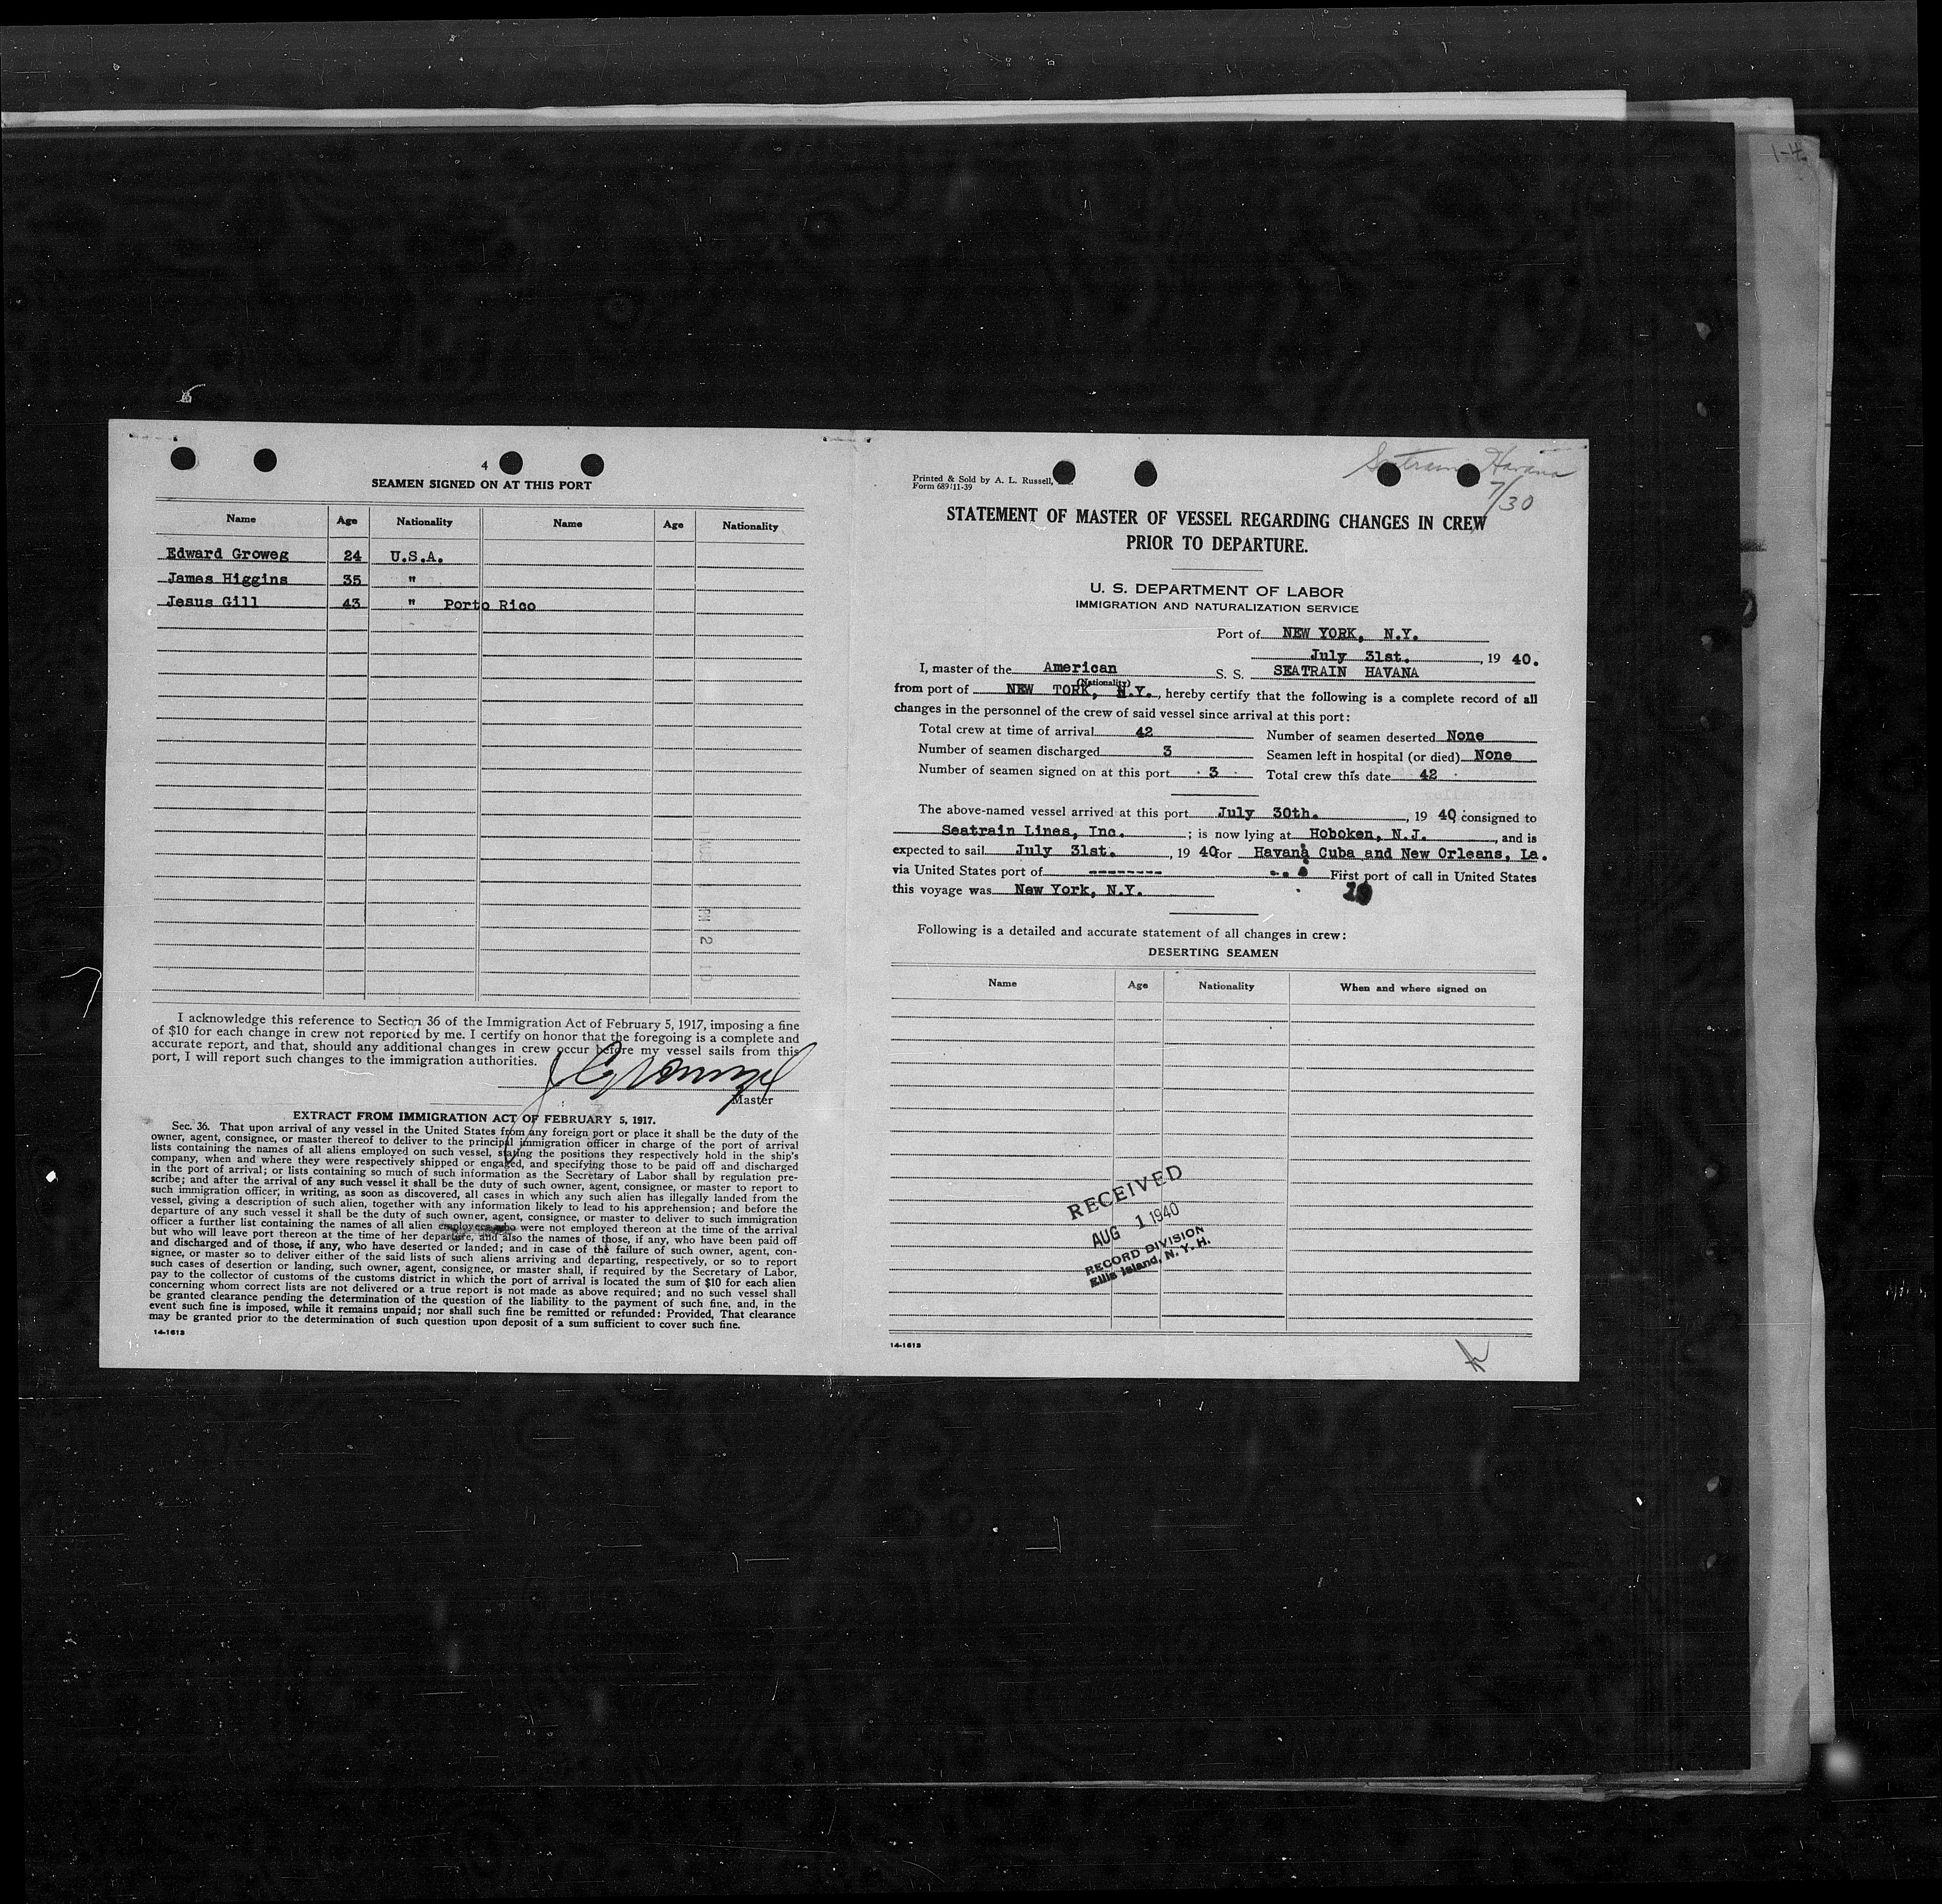 4
SEAMEN SIGNED ON AT THIS PORT
Name Age Nationality Name Age Nationality
Edward Groweg 24 U.S.A.
James Higgins 35 "
Jesus Gill 43 " Porto Rico
I acknowledge this reference to Section 36 of the Immigration Act of February 5, 1917, imposing a fine
of $10 for each change in crew not reported by me. I certify on honor that the foregoing is a complete and
accurate report, and that, should any additional changes in crew occur before my vessel sails from this
port, I will report such changes to the immigration authorities.
Master
EXTRACT FROM IMMIGRATION ACT OF FEBRUARY 5, 1917.
Sec. 36. That upon arrival of any vessel in the United States from any foreign port or place it shall be the duty of the
owner, agent, consignee, or master thereof to deliver to the principal immigration officer in charge of the port of arrival
lists containing the names of all aliens employed on such vessel, stating the positions they respectively hold in the ship's
company, when and where they were respectively shipped or engaged, and specifying those to be paid off and discharged
in the port of arrival; or lists containing so much of such information as the Secretary of Labor shall by regulation pre-
scribe; and after the arrival of any such vessel it shall be the duty of such owner, agent, consignee, or master to report to
such immigration officer, in writing, as soon as discovered, all cases in which any such alien has illegally landed from the
vessel, giving a description of such alien, together with any information likely to lead to his apprehension; and before the
departure of any such vessel it shall be the duty of such owner, agent, consignee, or master to deliver to such immigration
officer a further list containing the names of all alien employees who were not employed thereon at the time of the arrival
but who will leave port thereon at the time of her departure, and also the names of those, if any, who have been paid off
and discharged and of those, if any, who have deserted or landed; and in case of the failure of such owner, agent, con-
signee, or master so to deliver either of the said lists of such aliens arriving and departing, respectively, or so to report
such cases of desertion or landing, such owner, agent, consignee, or master shall, if required by the Secretary of Labor,
pay to the collector of customs of the customs district in which the port of arrival is located the sum of $10 for each alien
concerning whom correct lists are not delivered or a true report is not made as above required; and no such vessel shall
be granted clearance pending the determination of the question of the liability to the payment of such fine, and, in the
event such fine is imposed, while it remains unpaid; nor shall such fine be remitted or refunded: Provided, That clearance
may be granted prior to the determination of such question upon deposit of a sum sufficient to cover such fine.
14-1613
Seatrain Havana
7/30
Printed & Sold by A. L. Russell,
Form 689:11-39
STATEMENT OF MASTER OF VESSEL REGARDING CHANGES IN CREW
PRIOR TO DEPARTURE.
U. S. DEPARTMENT OF LABOR
IMMIGRATION AND NATURALIZATION SERVICE
Port of NEW YORK, N.Y.
July 31st. , 19 40.
I, master of the American S. S. SEATRAIN HAVANA
(Nationality)
from port of NEW TORK, N.Y. , hereby certify that the following is a complete record of all
changes in the personnel of the crew of said vessel since arrival at this port:
Total crew at time of arrival 42 Number of seamen deserted None
Number of seamen discharged 3 Seamen left in hospital (or died) None
Number of seamen signed on at this port 3 Total crew this date 42
The above-named vessel arrived at this port July 30th. , 19 40, consigned to
Seatrain Lines, Inc. ; is now lying at Hoboken, N.J. , and is
expected to sail July 31st. , 19 40 for Havana Cuba and New Orleans, La.
via United States port of -------- First port of call in United States
this voyage was New York, N.Y. 19
Following is a detailed and accurate statement of all changes in crew:
DESERTING SEAMEN
Name Age Nationality When and where signed on
RECEIVED
AUG 1 1940
RECORD DIVISION
Ellis Island, N. Y. H.
14-1613
1-4